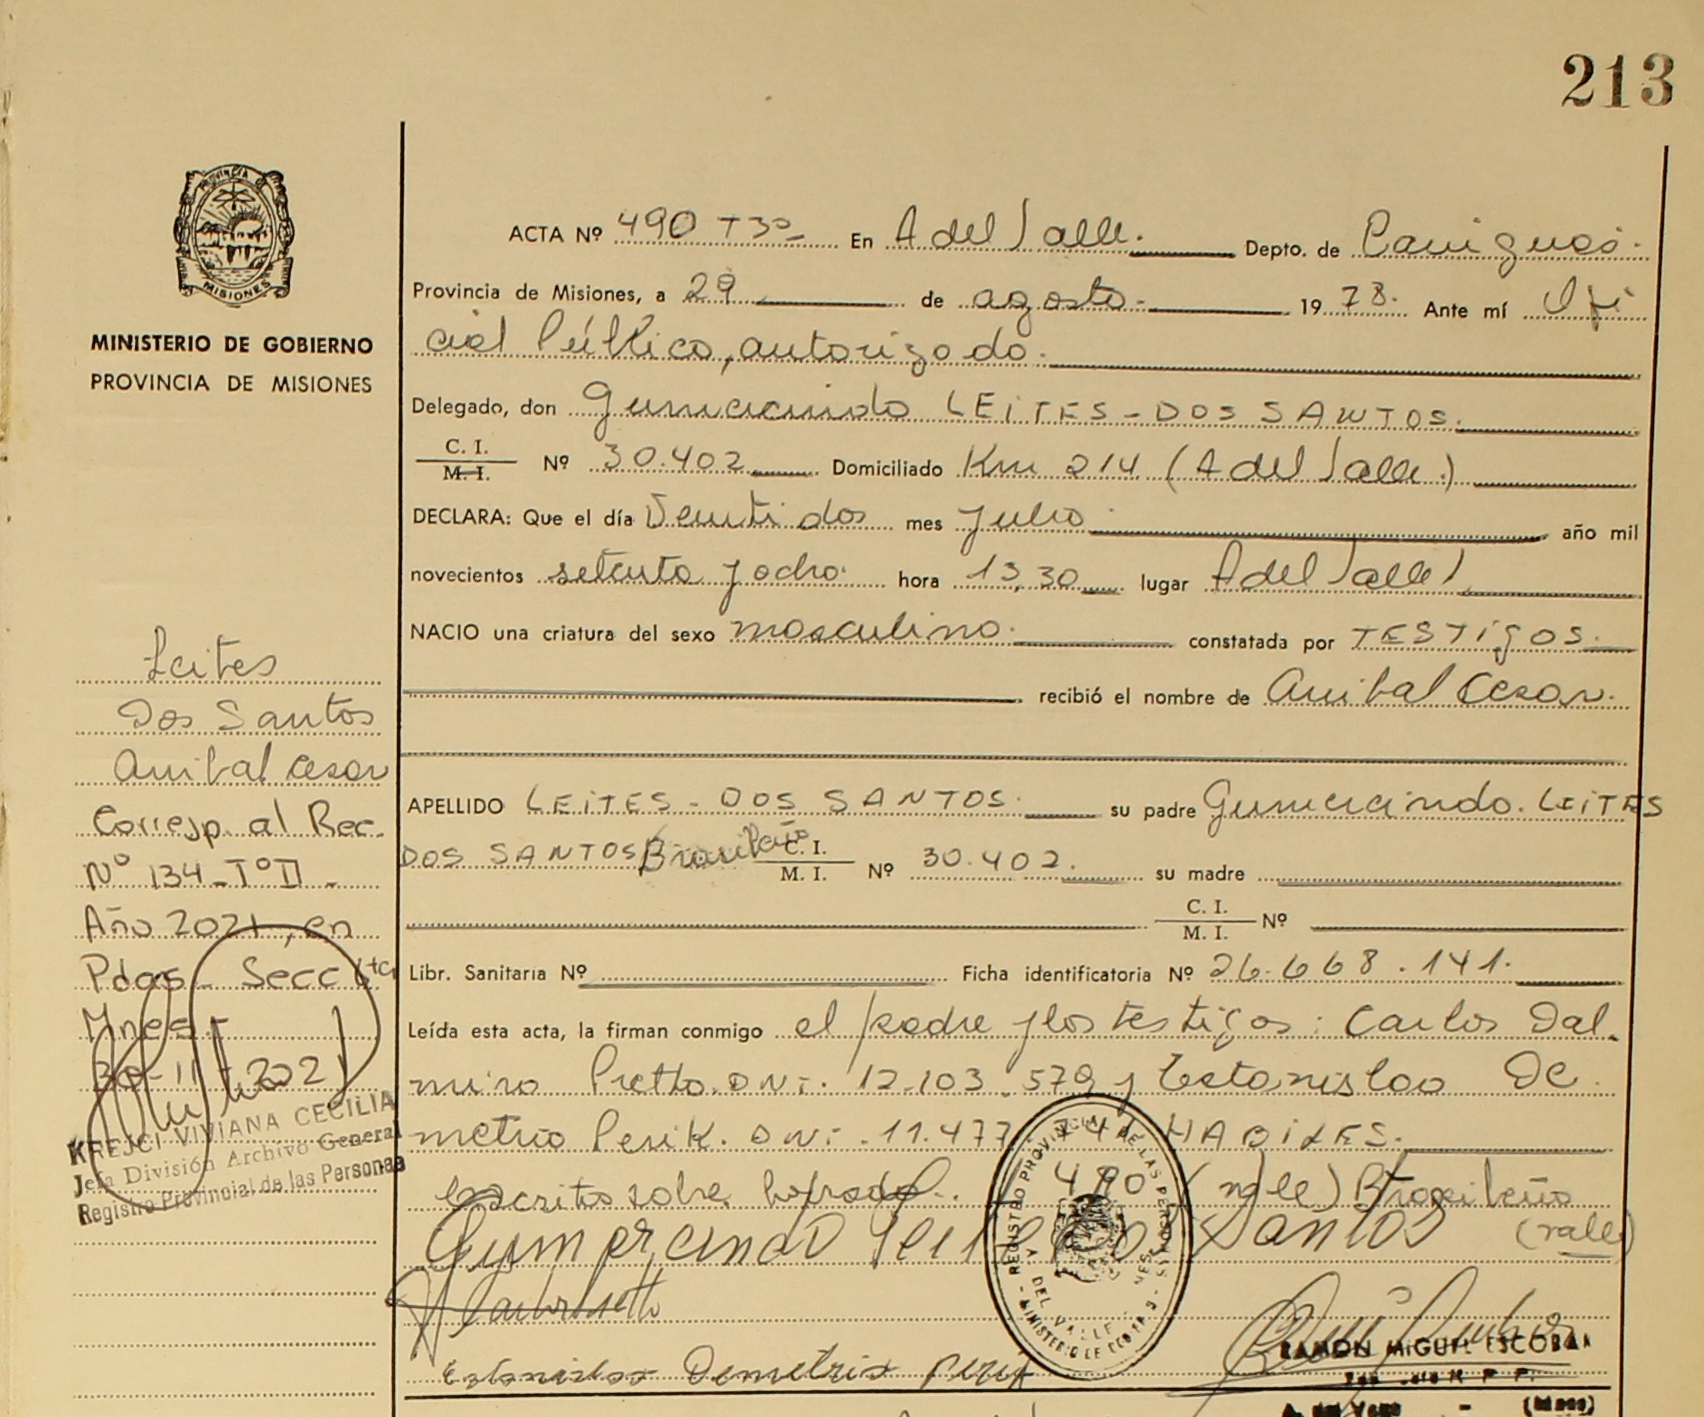 213
PROVINCIA DE
MISIONES
MINISTERIO DE GOBIERNO
PROVINCIA DE MISIONES
ACTA Nº 490 Tº3º En A del Valle. Depto. de Cainguás.
Provincia de Misiones, a 29 de agosto. 1978. Ante mí Ofi
cial Público, autorizado.
Delegado, don Gumercindo LEiTES - DOS SANTOS.
C. I.
M. I. Nº 30.402 Domiciliado Km 214 (A del Valle.)
DECLARA: Que el día Veintidos mes julio. año mil
novecientos setenta y ocho. hora 13,30 lugar A del Valle
NACIO una criatura del sexo masculino. constatada por TESTigOS.
recibió el nombre de Anibal Cesar.
APELLIDO LEiTES - DOS SANTOS. su padre Gumercindo. LEiTES
DOS SANTOS Brasileño C. I.
M. I. Nº 30.402. su madre
C. I.
M. I. Nº
Libr. Sanitaria Nº Ficha identificatoria Nº 26.668.141.
Leída esta acta, la firman conmigo el padre y los testigos: Carlos Dal
miro Pretto. DNi. 12.103.579 y Estanislao De
metrio Perik. DNi. 11.477 HABILES.
Escrito sobre borrado. 490 (vale) Brasileño
(vale)
Gumercindo Leites dos Santos
Estanislao Demetrio Perik
REGISTRO PROVINCIAL DE LAS PERSONAS
DEL VALLE
RAMON MIGUEL ESCOBAR
A. del Valle - (Mnes)
Leites
Dos Santos
Anibal Cesar
Corresp. al Rec.
Nº 134 - Tº II -
Año 2021, en
Pdas - Secc 6ta
Mnes -
30-11-2021
KREJCI VIVIANA CECILIA
Jefa División Archivo General
Registro Provincial de las Personas